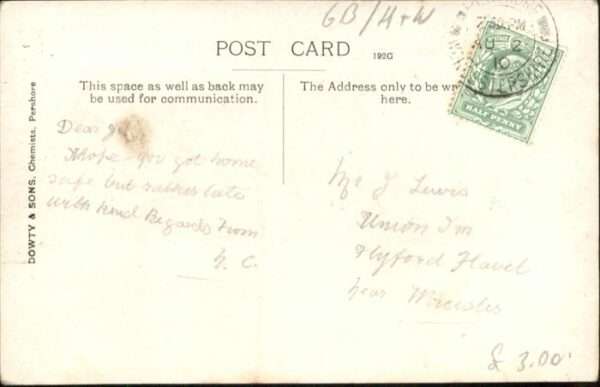 6B/H+W
POST CARD 192G
This space as well as back may
be used for communication.
The Address only to be wr
here.
HALF PENNY
DOWTY & SONS, Chemists, Pershore
Dear
I hope you got home
safe but rather late
with kind Regards From
Mr J Lewis
Union Inn
Flyford Flavel
near Worcester
£ 3.00